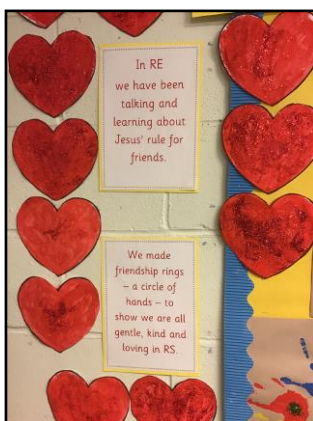 In RE
we have been
talking and
learning about
Jesus' rule for
friends.
We made
friendship rings
– a circle of
hands – to
show we are all
gentle, kind and
loving in RS.